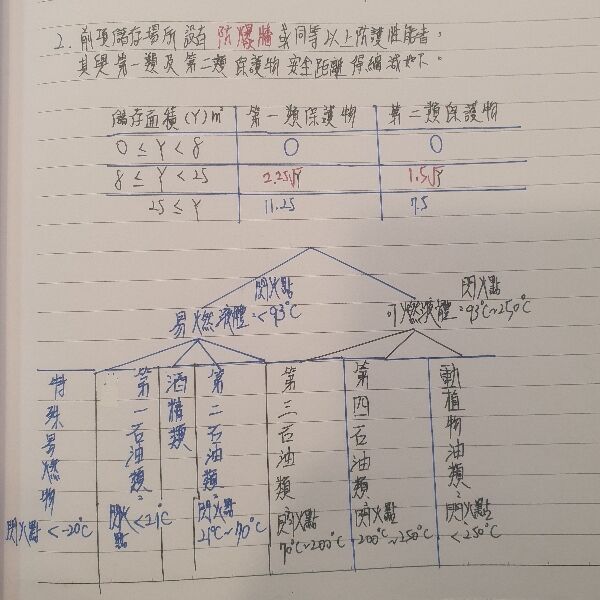 2. 前項儲存場所設有防爆牆或同等以上防護性能者,
其與第一類及第二類保護物安全距離得縮減如下。
儲存面積(Y)m² 第一類保護物 第二類保護物
0 ≤ Y < 8 0 0
8 ≤ Y < 25 2.25√Y 1.5√Y
25 ≤ Y 11.25 7.5
閃火點
易燃液體=<93°C
閃火點
可燃液體=93°C~250°C
特殊易燃物
閃火點 <-20°C
第一石油類:
閃火點 <21°C
酒精類
第二石油類:
閃火點
21°C~70°C
第三石油類
閃火點
70°C~200°C
第四石油類:
閃火點
200°C~250°C
動植物油類:
閃火點
<250°C